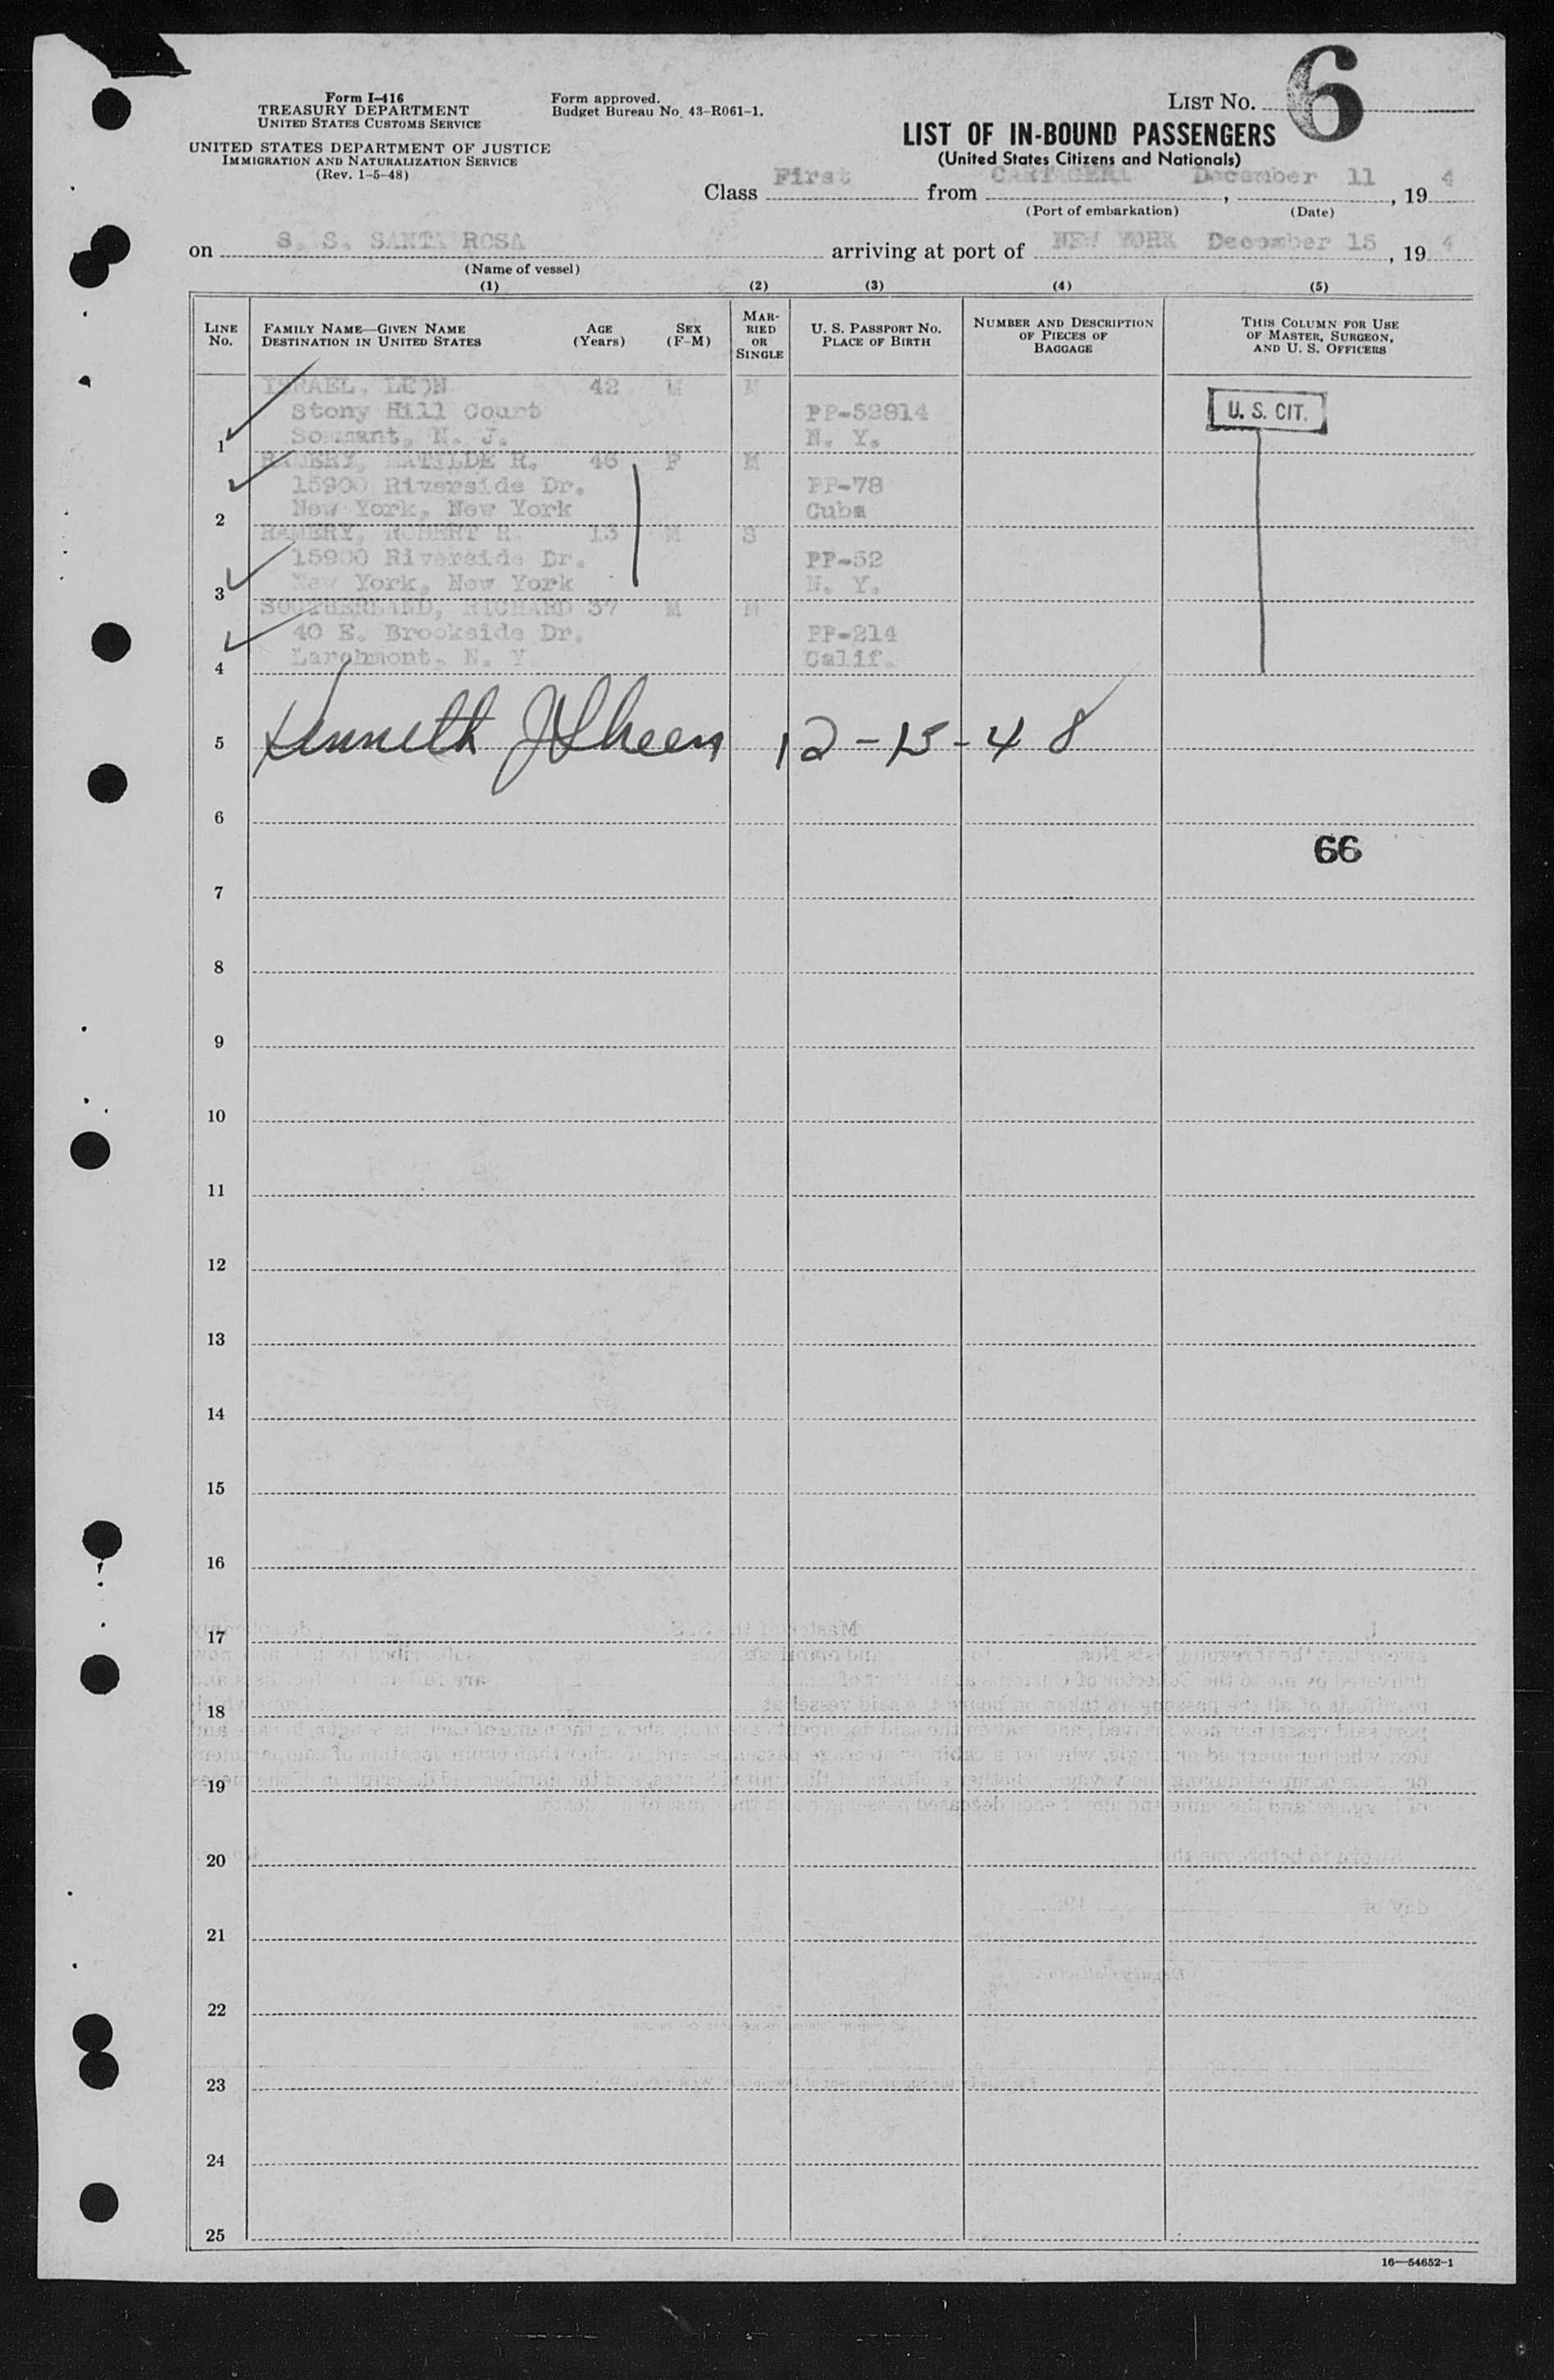 Form I-416
TREASURY DEPARTMENT
UNITED STATES CUSTOMS SERVICE
UNITED STATES DEPARTMENT OF JUSTICE
IMMIGRATION AND NATURALIZATION SERVICE
(Rev. 1-5-48)
Form approved.
Budget Bureau No. 43-R061-1.
LIST NO. 6
LIST OF IN-BOUND PASSENGERS
(United States Citizens and Nationals)
Class First from CARTAGENA, December 11, 19 4
(Port of embarkation) (Date)
on S. S. SANTA ROSA arriving at port of NEW YORK December 15, 19 4
(Name of vessel)
(1) (2) (3) (4) (5)
LINE NO.
FAMILY NAME—GIVEN NAME
DESTINATION IN UNITED STATES
AGE (Years)
SEX (F-M)
MARRIED OR SINGLE
U. S. PASSPORT NO.
PLACE OF BIRTH
NUMBER AND DESCRIPTION OF PIECES OF BAGGAGE
THIS COLUMN FOR USE OF MASTER, SURGEON, AND U. S. OFFICERS
ISRAEL, LEON 42 M M
Stony Hill Court PP-52814 U. S. CIT.
1 N. J. N. Y.
RAMERY, MATILDE R. 46 F M
15900 Riverside Dr. PP-78
2 New York, New York Cuba
RAMERY, ROBERT R. 13 M S
15900 Riverside Dr. PP-52
3 New York, New York N. Y.
SOUTHERLAND, RICHARD 37 M M
40 E. Brookside Dr. PP-214
4 Larchmont, N. Y Calif.
5 Kenneth J Sheen 12-15-48
6
66
7
8
9
10
11
12
13
14
15
16
17
18
19
20
21
22
23
24
25
16—54652-1